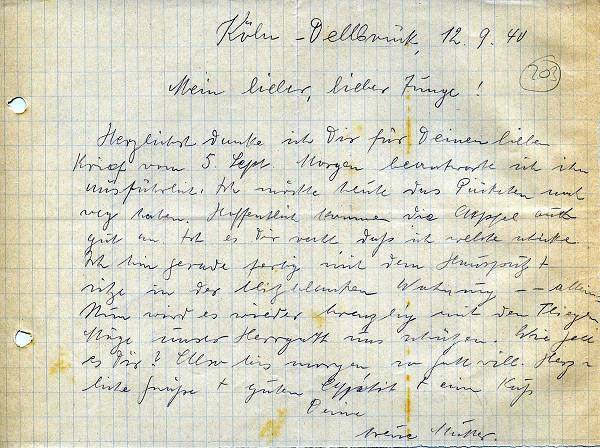 Köln-Dellbrück, 12.9.40
203
Mein lieber, lieber Junge!
Herzlichst danke ich Dir für Deinen lieben
Brief vom 5. Sept. Morgen beantworte ich ihn
ausführlich. Ich möchte heute das Päckchen noch
weg haben. Hoffentlich kommen die Äpfel auch
gut an. Ist es Dir recht daß ich welche schicke.
Ich bin gerade fertig mit dem Hausputz +
sitze in der blitzblanken Wohnung -- allein
Nun wird es wieder brenzlig mit den Flieger
Möge unser Herrgott uns schützen. Wie geht
es Dir? Also bis morgen, so Gott will. Herz-
liche Grüße + guten Appetit + ein Kuß
Deine
treue Mutter.